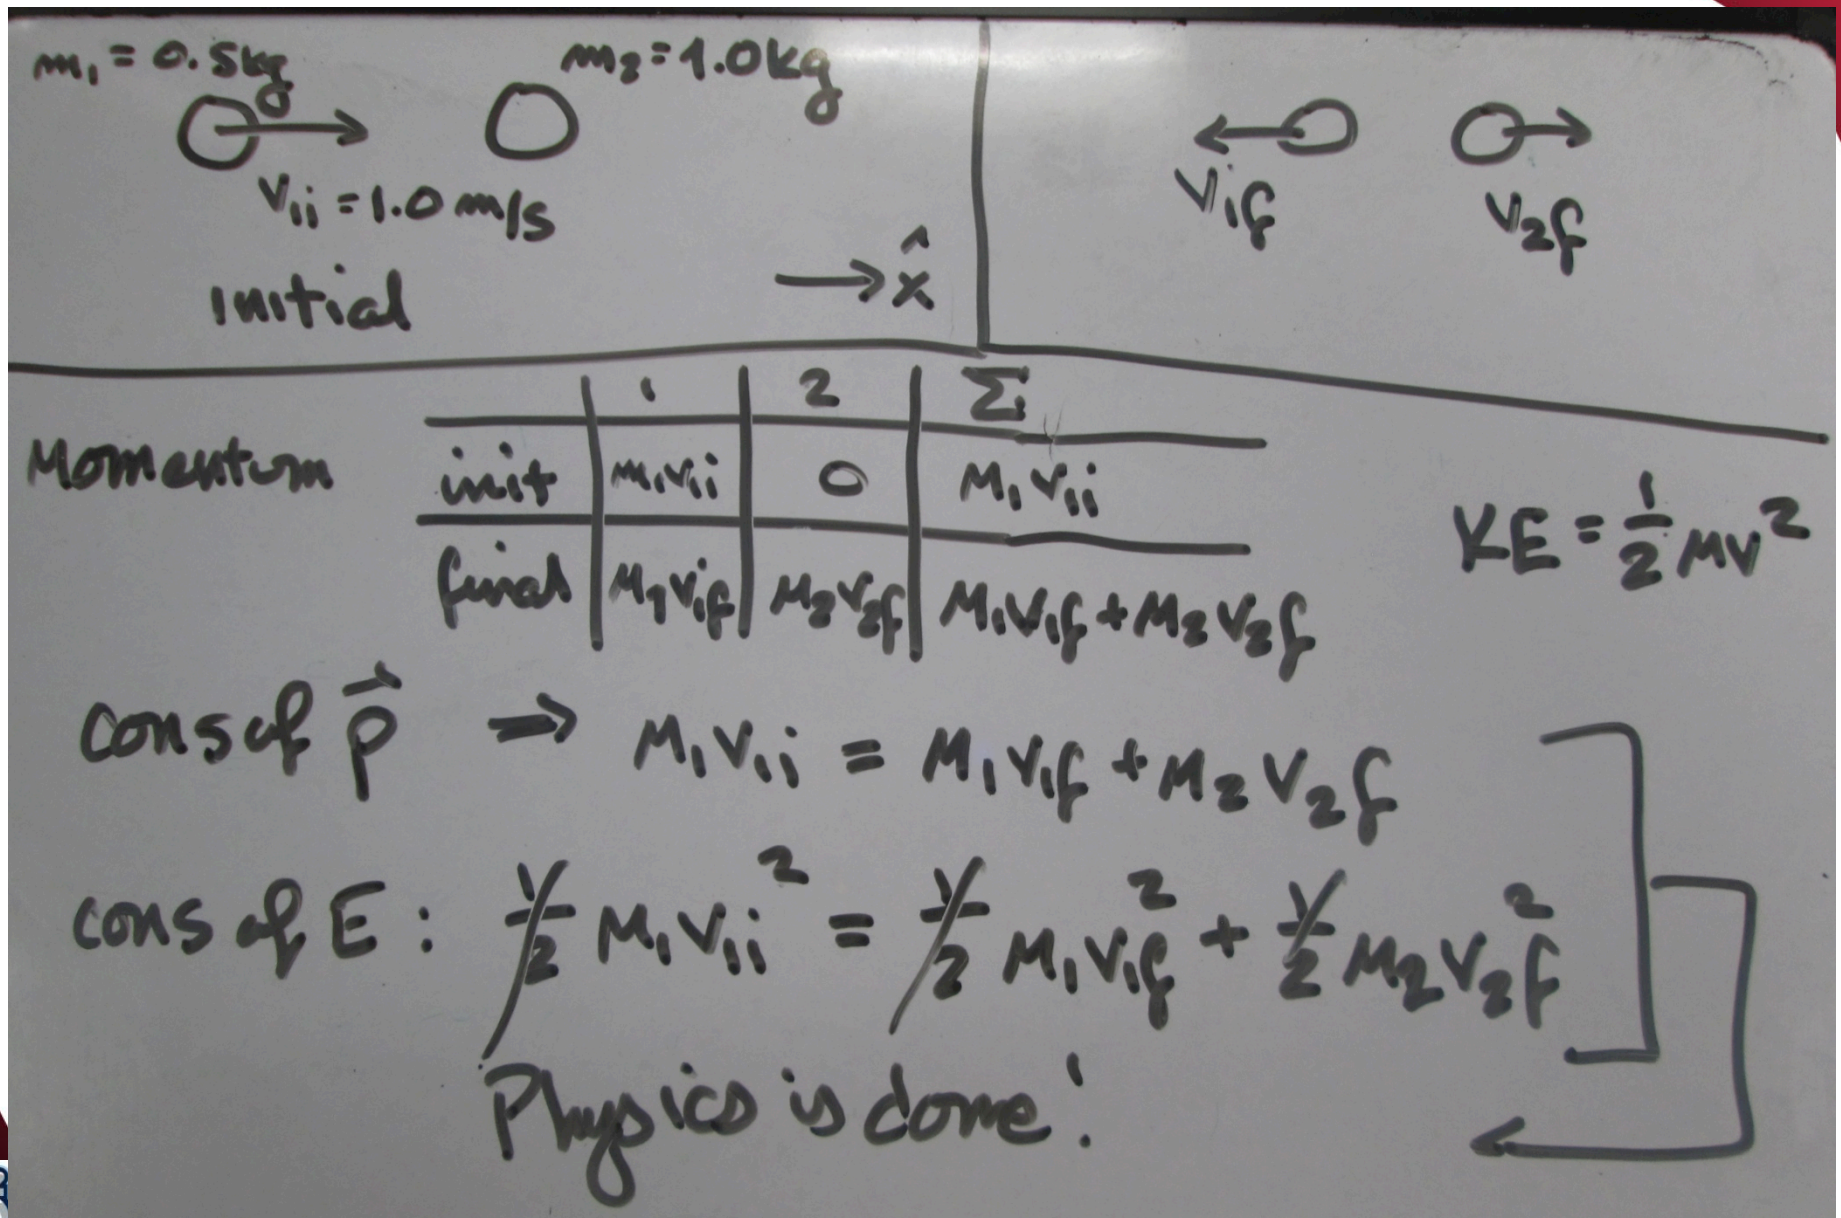 m₁ = 0.5kg
m₂ = 1.0kg
v₁ᵢ = 1.0 m/s
v₁f
v₂f
Initial
→ x̂
1 2 Σ
Momentum
init m₁v₁ᵢ 0 M₁v₁ᵢ
KE = 1/2 mv²
final M₁v₁f M₂v₂f M₁v₁f + M₂v₂f
cons of p⃗ → M₁v₁ᵢ = M₁v₁f + M₂v₂f
cons of E : 1/2 M₁v₁ᵢ² = 1/2 M₁v₁f² + 1/2 M₂v₂f²
Physics is done!